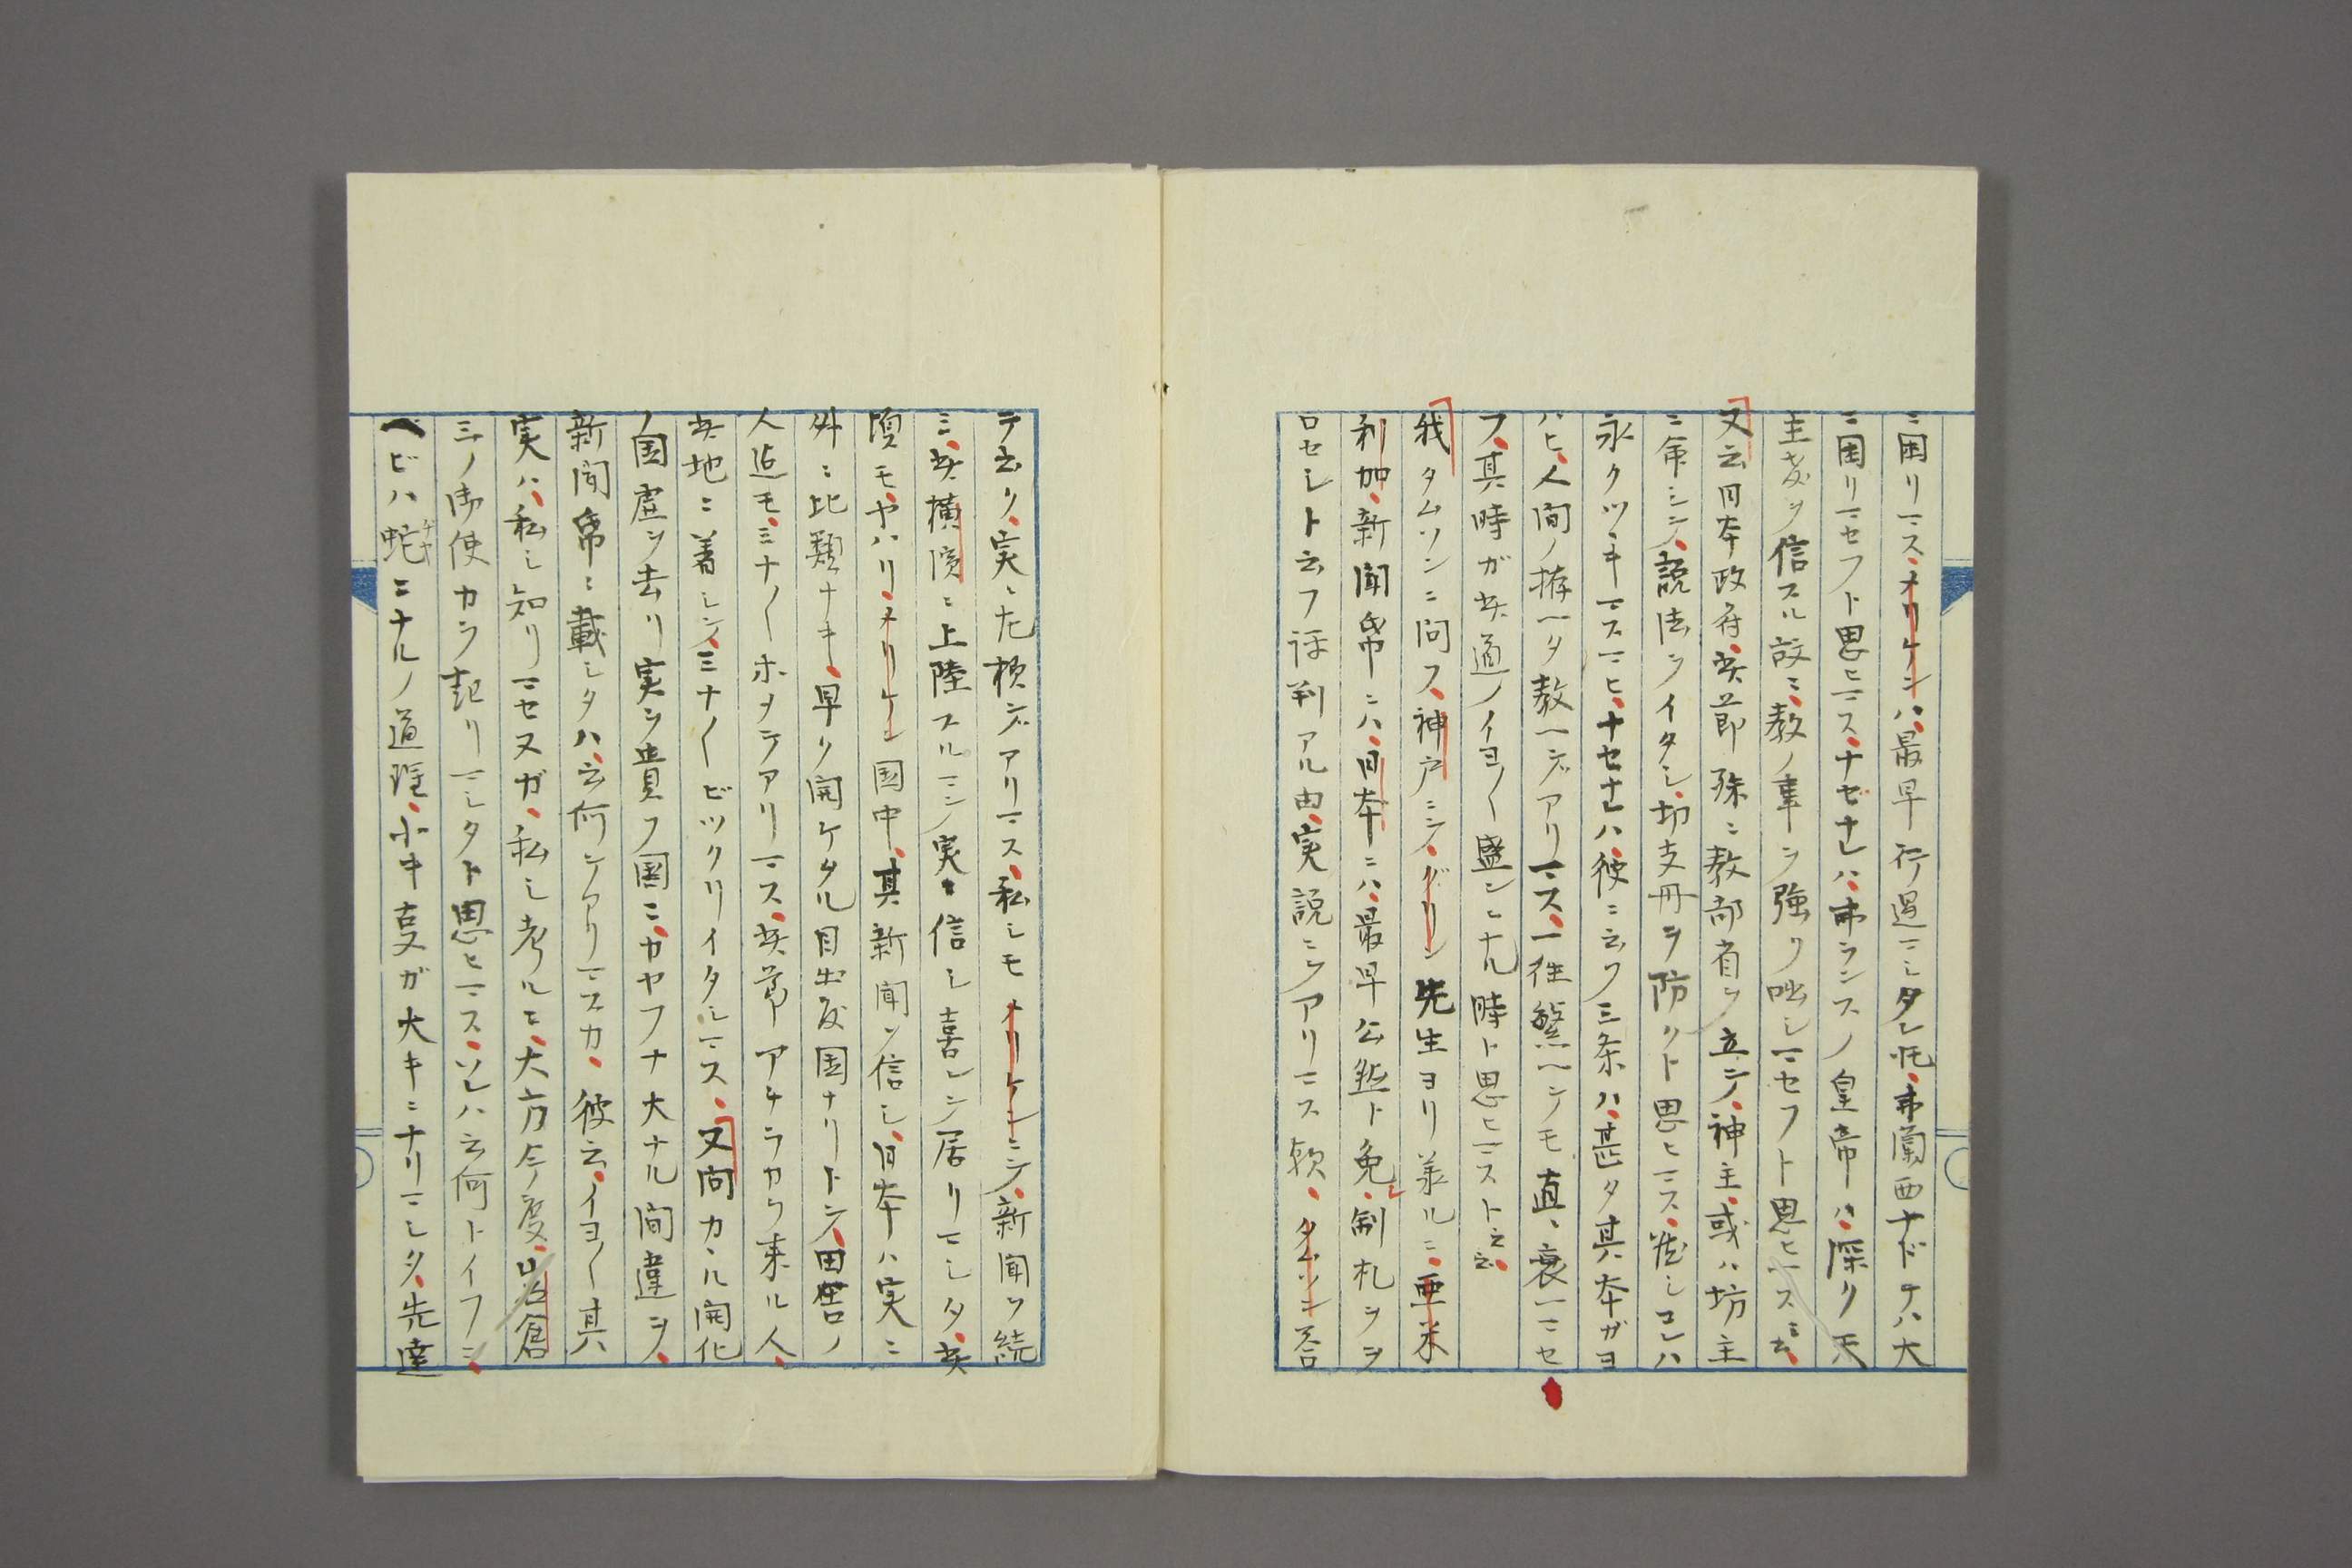 ニ困リマス、メリケンハ、最早行過マシタレ㕧、弗蘭西ナドテハ大
ニ困リマセフト思ヒマス、ナゼナレハ、弗ランスノ皇帝ハ、深ク天
主教ヲ信スル故ニ、教ノ事ヲ強ク咄シマセフト思ヒマスニ云、
又云日本政府、此節殊ニ教部省ヲ立テ、神主、或ハ坊主
ニ命シテ、説法ヲイタシ、切支丹ヲ防クト思ヒマス、併シコレハ
永クツヽキマスマヒ、ナセナレハ、彼ニ云フ三条ハ、甚タ其本ガヨ
ハヒ、人間ノ拵ヘタ教ヘデアリマス、一往繁ヘテモ直ニ衰ヘマセ
フ、其時ガ此道ノイヨ〱盛ンニナル時ト思ヒマスト云云、
我タムソンニ問フ、神戸ニテ、グリン先生ヨリ承ルニ、亜米
利加、新聞帋ニハ、日本ニハ、最早公然ト免レ、制札ヲヲ
ロセシト云フ評判アル由、実説ニテアリマス歟、タムソン答
テ云ク、実ニ左様デアリマス、私シモメリケンニテ、新聞ヲ続
ミ、此横濱ニ上陸スルマテ実ニ信シ喜ンテ居リマシタ、此
頃モヤハリメリケン国中、其新聞ヲ信シ、日本ハ実ニ
外ニ比類ナキ、早ク開ケタル目出度国ナリトテ、田舎ノ
人迄モ、ミナ〱ホメテアリマス、此節アチラカラ来ル人、
此地ニ着シテ、ミナ〱ビックリイタシマス、又問カヽル開化
ノ国虚ヲ去リ実ヲ貴フ国ニ、カヤフナ大ナル間違ヲ、
新聞帋ニ載シタハ、云何シテアリマスカ、彼云、イヨ〱其
実ハ、私シ知リマセヌガ、私シ考ルニ、大方今度、岩倉
ミノ御使カラ起リマシタト思ヒマス、ソレハ云何トイフニ、
ヘビハ蛇ニナルノ道理、小キ事ガ大キニナリマシタ、先達